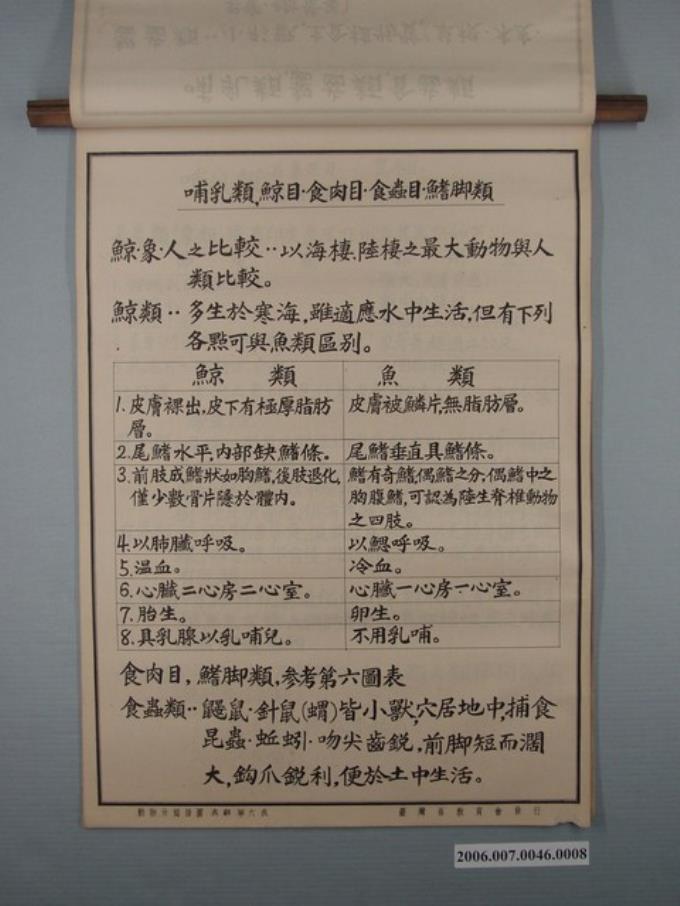 哺乳類,鯨目·食肉目·食蟲目·鰭脚類
鯨·象·人之比較··以海棲.陸棲之最大動物與人
類比較。
鯨類··多生於寒海,雖適應水中生活,但有下列
各點可與魚類區别。
鯨類 魚類
1.皮膚裸出,皮下有極厚脂肪層。 皮膚被鱗片,無脂肪層。
2.尾鰭水平,内部缺鰭條。 尾鰭垂直具鰭條。
3.前肢成鰭狀如胸鰭,後肢退化,僅少數骨片隱於體内。 鰭有奇鰭,偶鰭之分,偶鰭中之胸腹鰭,可認為陸生脊椎動物之四肢。
4.以肺臟呼吸。 以鰓呼吸。
5.温血。 冷血。
6.心臟二心房二心室。 心臟一心房一心室。
7.胎生。 卵生。
8.具乳腺以乳哺兒。 不用乳哺。
食肉目,鰭脚類,参考第六圖表
食蟲類··鼴鼠·針鼠(蝟)皆小獸,穴居地中,捕食
昆蟲·蚯蚓·吻尖齒鋭,前脚短而濶
大,鈎爪鋭利,便於土中生活。
臺灣省教育會發行
2006.007.0046.0008